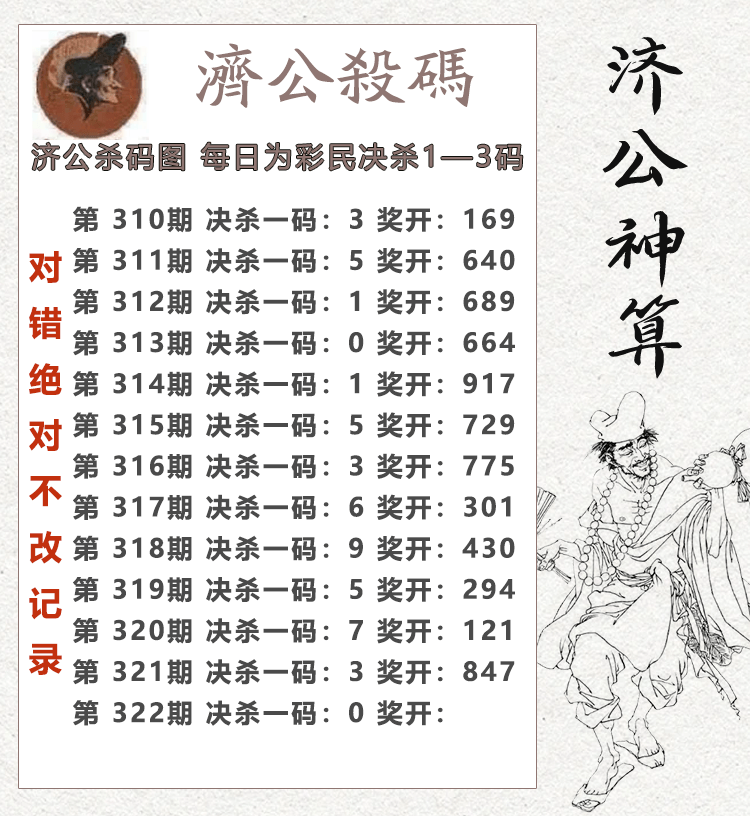 濟公殺碼
济公杀码图 每日为彩民决杀1—3码
第 310期 决杀一码：3 奖开：169
第 311期 决杀一码：5 奖开：640
第 312期 决杀一码：1 奖开：689
第 313期 决杀一码：0 奖开：664
第 314期 决杀一码：1 奖开：917
第 315期 决杀一码：5 奖开：729
第 316期 决杀一码：3 奖开：775
第 317期 决杀一码：6 奖开：301
第 318期 决杀一码：9 奖开：430
第 319期 决杀一码：5 奖开：294
第 320期 决杀一码：7 奖开：121
第 321期 决杀一码：3 奖开：847
第 322期 决杀一码：0 奖开：
对错绝对不改记录
济公神算